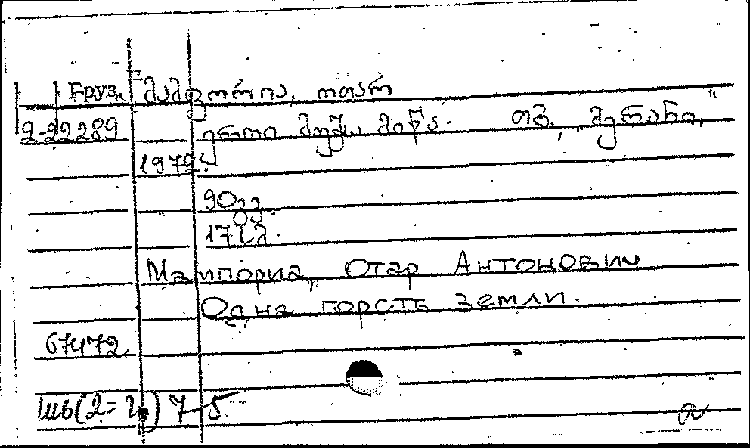 Груз. მამფორია, ოთარ
2-22289 ერთი მუჭა მიწა. თბ., „მერანი,"
1979.
90გვ.
17სმ.
Мампориа, Отар Антонович
Одна горсть земли.
67472.